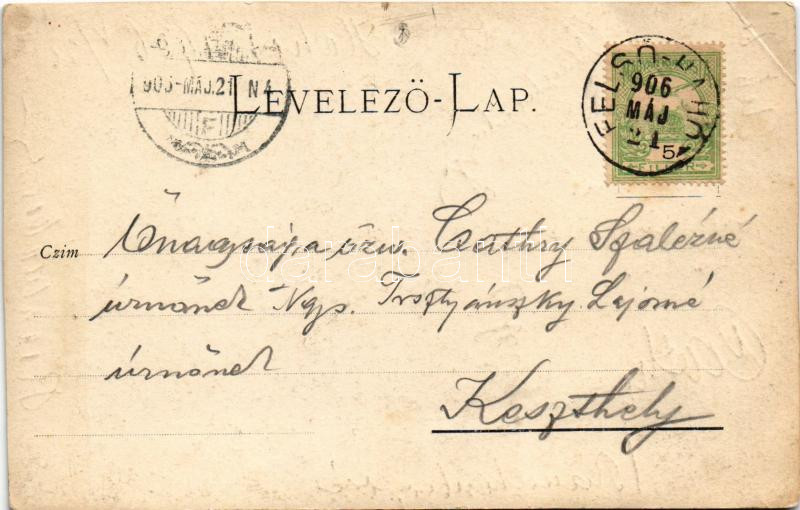 906-MÁJ.21 N4
LEVELEZŐ-LAP.
FELSŐ-
906
MÁJ
21
5
FILLÉR
Czim
Őnagysága özv. Cathry Szalézné
úrnőnek Ngs. Trsztyánszky Lajosné
úrnőnek
Keszthely
darabanth